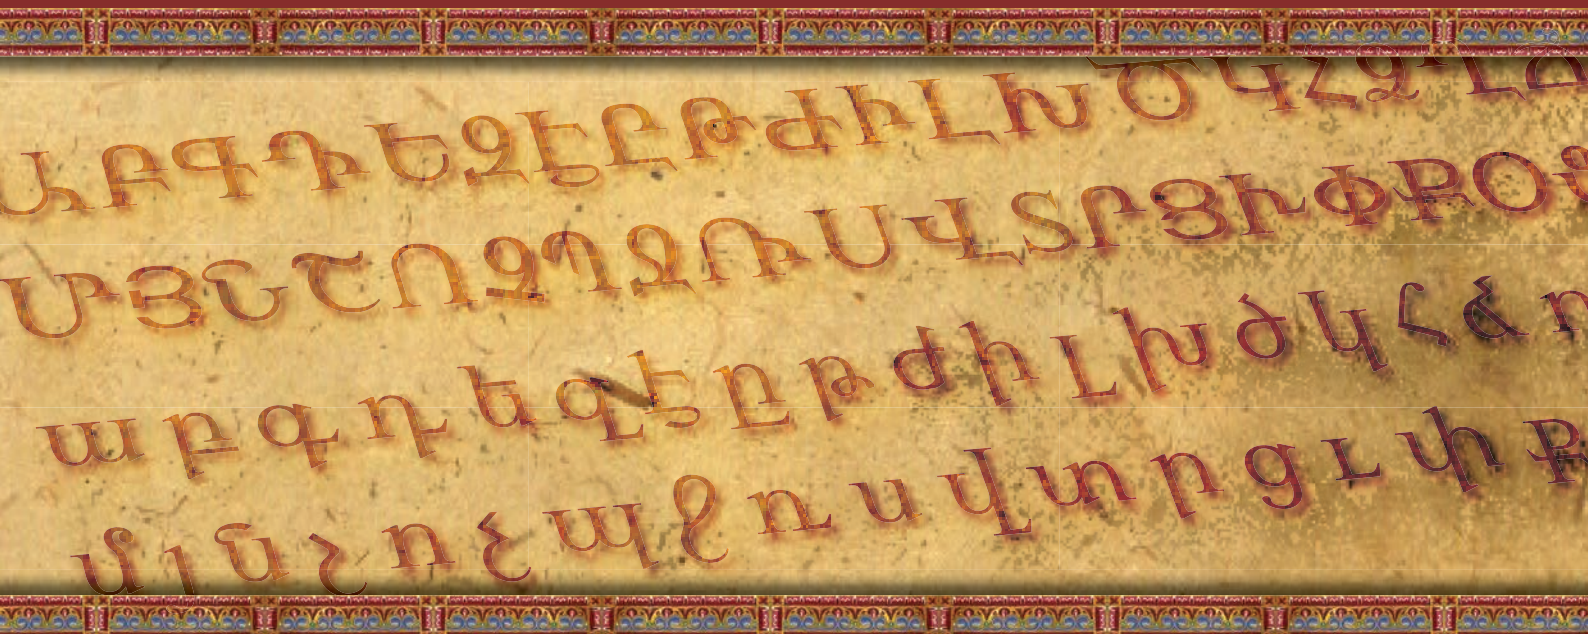 ԱԲԳԴԵԶԷԸԹԺԻԼԽԾԿՀՁՂՃ
ՄՅՆՇՈՉՊՋՌՍՎՏՐՑՒՓՔՕՖ
աբգդեզէըթժիլխծկհձղ
մյնշոչպջռսվտրցւփք